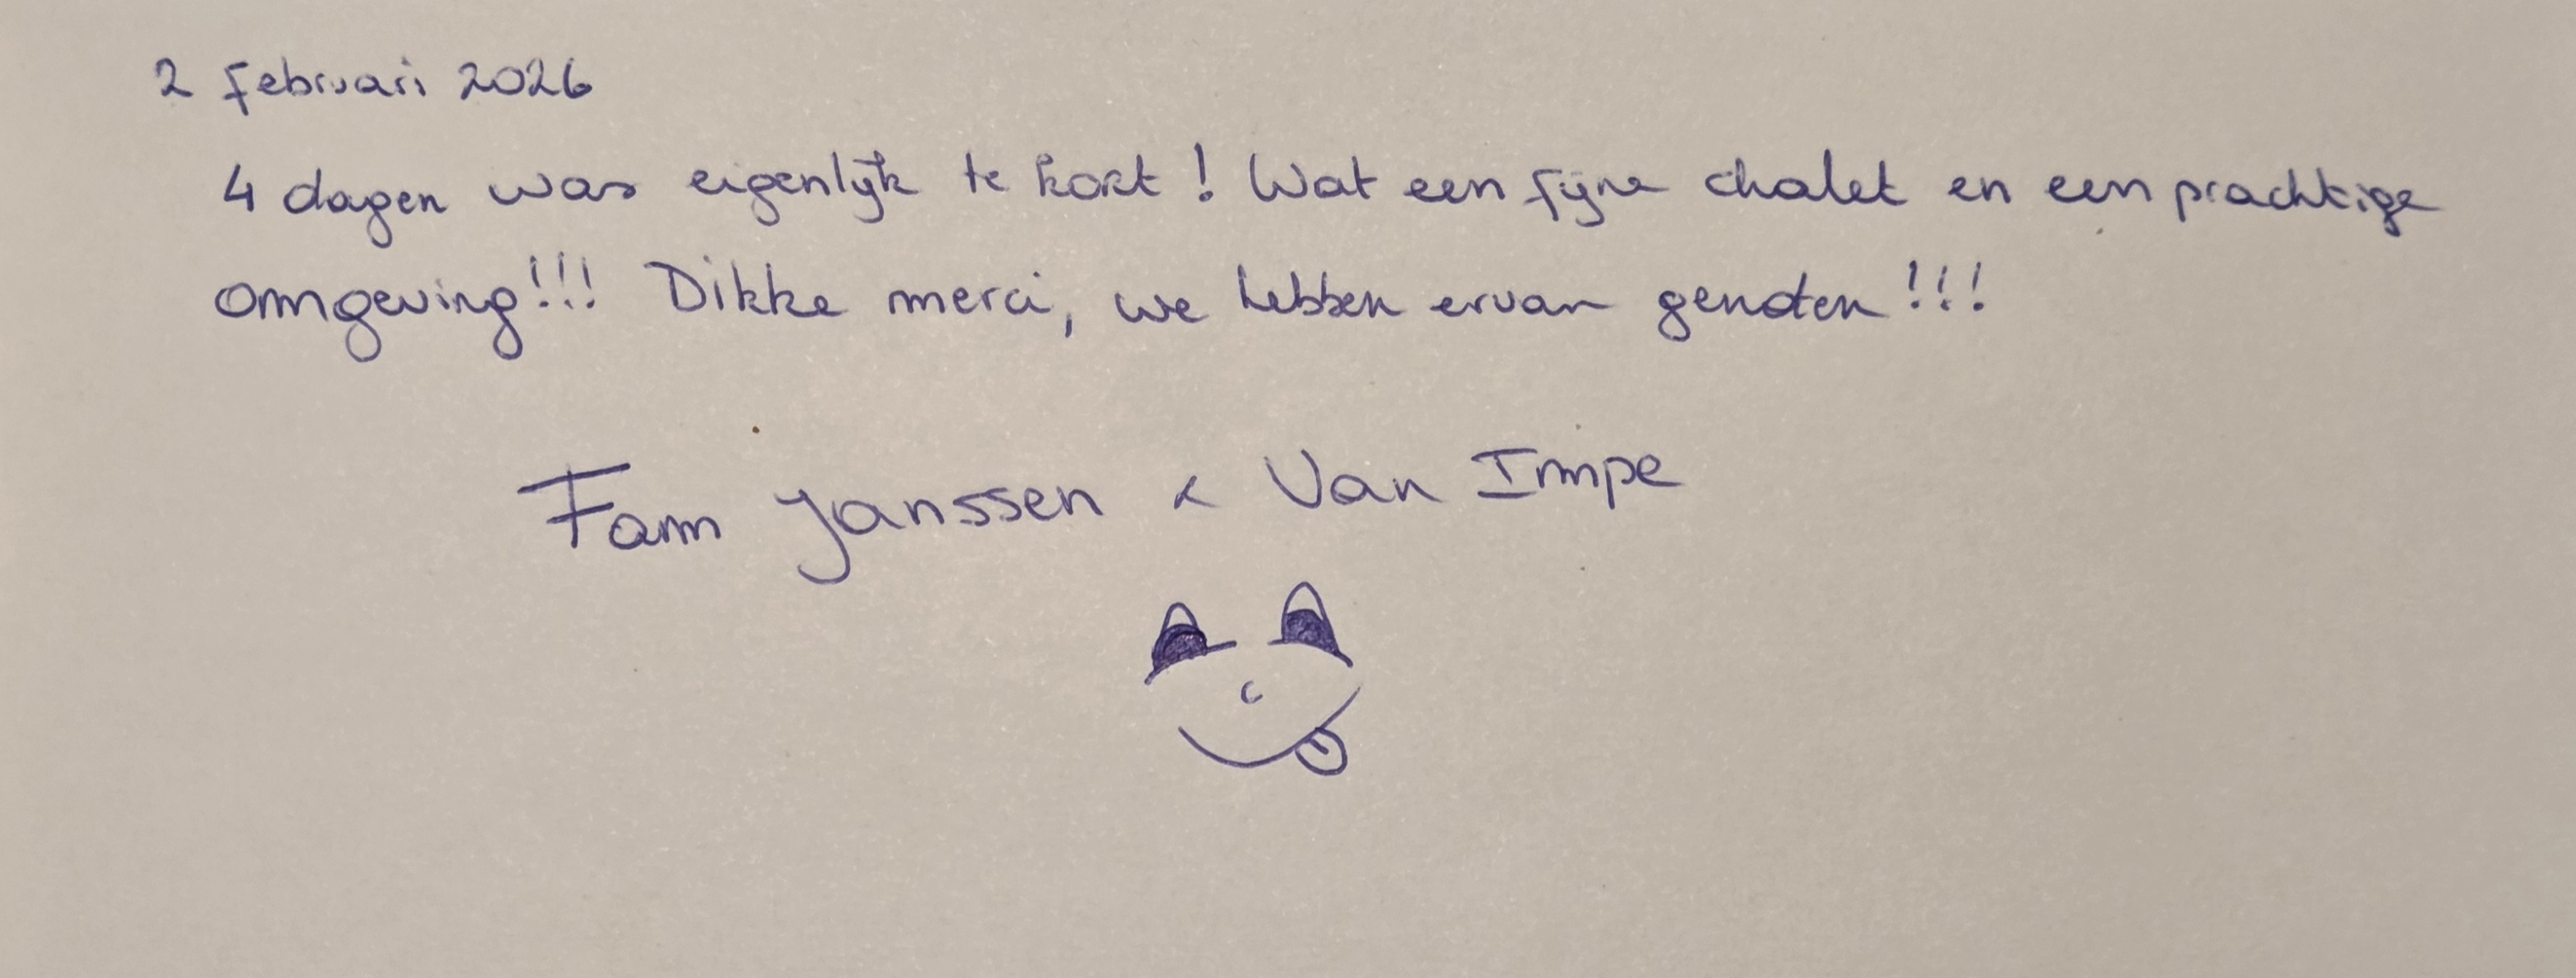 2 februari 2026
4 dagen was eigenlijk te kort! Wat een fijne chalet en een prachtige
omgeving!!! Dikke merci, we hebben ervan genoten!!!
Fam Janssen & Van Impe